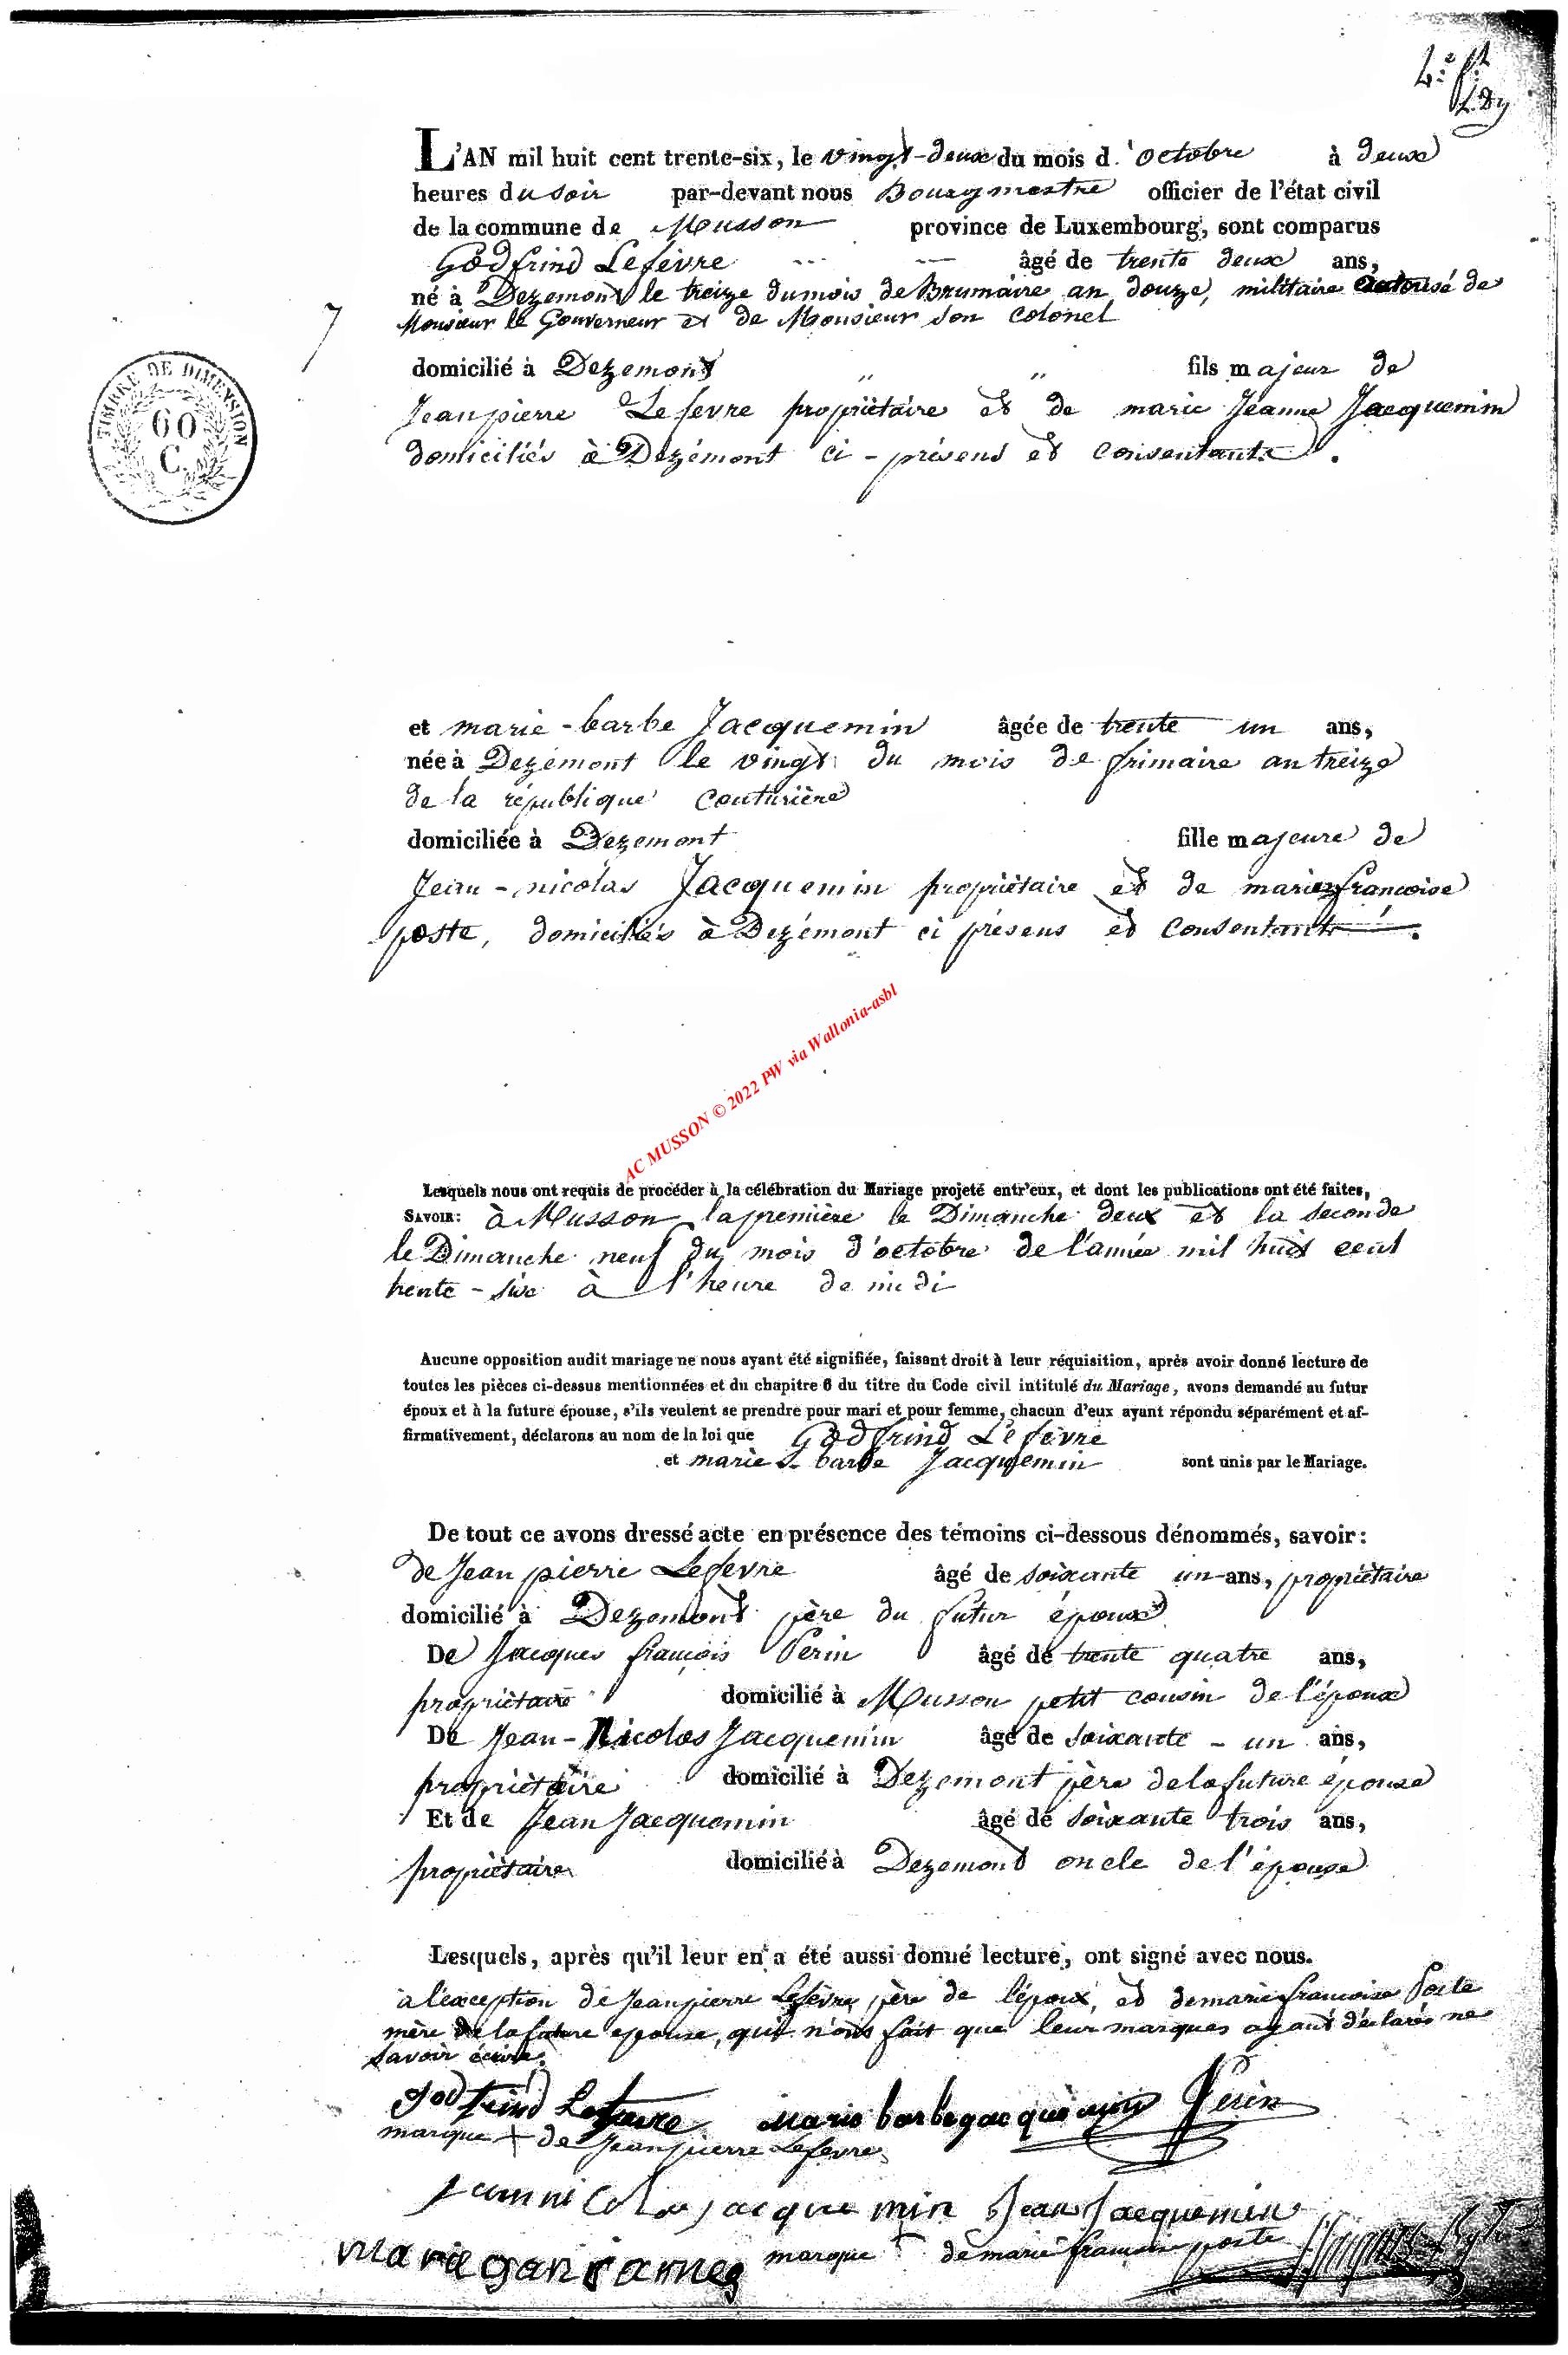 L'AN mil huit cent trente-six, le vingt-deux du mois d'octobre à deux
heures du soir par-devant nous Bourgmestre officier de l'état civil
de la commune de Musson province de Luxembourg, sont comparus
Godfrind Lefèvre âgé de trente deux ans,
né à Dezemont le treize du mois de Brumaire an douze, militaire autorisé de
Monsieur le Gouverneur et de Monsieur son Colonel
7
TIMBRE DE DIMENSION
60
C.
domicilié à Dezemont " " fils majeur de
Jean pierre Lefevre propriètaire et de marie Jeanne Jacquemin
domiciliés à Dezémont ci-présens et consentants.
et marie-barbe Jacquemin âgée de trente un ans,
née à Dezémont le vingt du mois de frimaire an treize
de la république Couturière
domiciliée à Dezemont fille majeure de
Jean-nicolas Jacquemin propriètaire et de marie françoise
poste, domiciliés à Dezémont ci présens et consentants.
AC MUSSON © 2022 PW via Wallonia-asbl
Lesquels nous ont requis de procéder à la célébration du Mariage projeté entr'eux, et dont les publications ont été faites,
SAVOIR: à Musson la première le Dimanche deux et la seconde
le Dimanche neuf du mois d'octobre de l'année mil huit cent
trente-six à l'heure de midi
Aucune opposition audit mariage ne nous ayant été signifiée, faisant droit à leur réquisition, après avoir donné lecture de
toutes les pièces ci-dessus mentionnées et du chapitre 6 du titre du Code civil intitulé du Mariage, avons demandé au futur
époux et à la future épouse, s'ils veulent se prendre pour mari et pour femme, chacun d'eux ayant répondu séparément et af-
firmativement, déclarons au nom de la loi que Godfrind Lefèvre
et marie-barbe Jacquemin sont unis par le Mariage.
De tout ce avons dressé acte en présence des témoins ci-dessous dénommés, savoir:
de Jean pierre Lefevre âgé de soixante un ans, propriètaire
domicilié à Dezemont père du futur époux
De Jacques françois Perin âgé de trente quatre ans,
propriètaire domicilié à Musson petit cousin de l'époux
De Jean-Nicolas Jacquemin âgé de soixante-un ans,
propriètaire domicilié à Dezemont père de la future épouse
Et de Jean Jacquemin âgé de soixante trois ans,
propriètaire domicilié à Dezemont oncle de l'épouse
Lesquels, après qu'il leur en a été aussi donné lecture, ont signé avec nous.
à l'exception de Jean pierre Lefèvre père de l'époux, et de marie francoise Poste
mère de la future epouse, qui n'ons fait que leur marques ayant déclarés ne
savoir écrire.
godfrind Lefevre Marie barbe jacquemin Perin
marque + de Jean pierre Lefevre
jean ni Colas jacque min Jean Jacquemin
marque de marie francoise poste